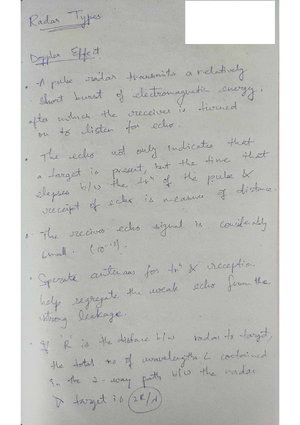 Radar Types
Doppler Effect
• A pulse radar transmits a relatively
short burst of electromagnetic energy,
after which the receiver is turned
on to listen for echo.
• The echo not only indicates that
a target is present, but the time that
elapses b/w the trⁿ of the pulse &
receipt of echo is measure of distance.
• The receive echo signal is considerably
small
• Seperate antennas for trⁿ & reception
help segregate the weak echo from the
strong leakage.
• If R is the distance b/w radar to target,
the total no of wavelengths contained
in the 2-way path b/w the radar
& target is 2R/λ